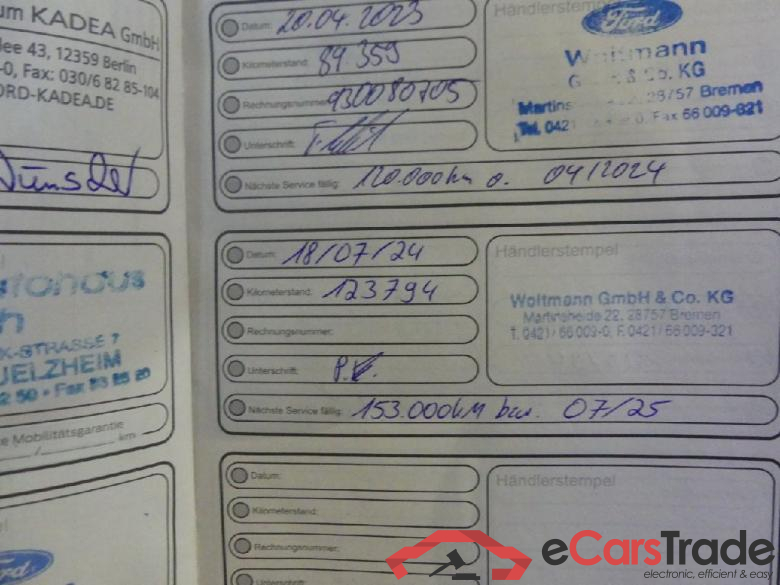 um KADEA GmbH
lee 43, 12359 Berlin
-0, Fax: 030/6 82 85-104
ORD-KADEA.DE
utohaus
h
X-STRASSE 7
UELZHEIM
2 50 • Fax 93 85 20
te Mobilitätsgarantie
km
Ford
Datum: 20.04.2023
Kilometerstand: 89.359
Rechnungsnummer: 930080705
Unterschrift:
Nächste Service fällig: 120.000km o. 04/2024
Händlerstempel
Ford
Woltmann
G & Co. KG
Martins 28757 Bremen
Tel. 0421 Fax 66 009-321
Datum: 18/07/24
Kilometerstand: 123794
Rechnungsnummer:
Unterschrift:
Nächste Service fällig: 153.000km bzw. 07/25
Händlerstempel
Woltmann GmbH & Co. KG
Martinsheide 22, 28757 Bremen
T. 0421/ 66 009-0, F. 0421/ 66 009-321
Datum:
Kilometerstand:
Rechnungsnummer:
Unterschrift:
Händlerstempel
eCarsTrade
electronic, efficient & easy